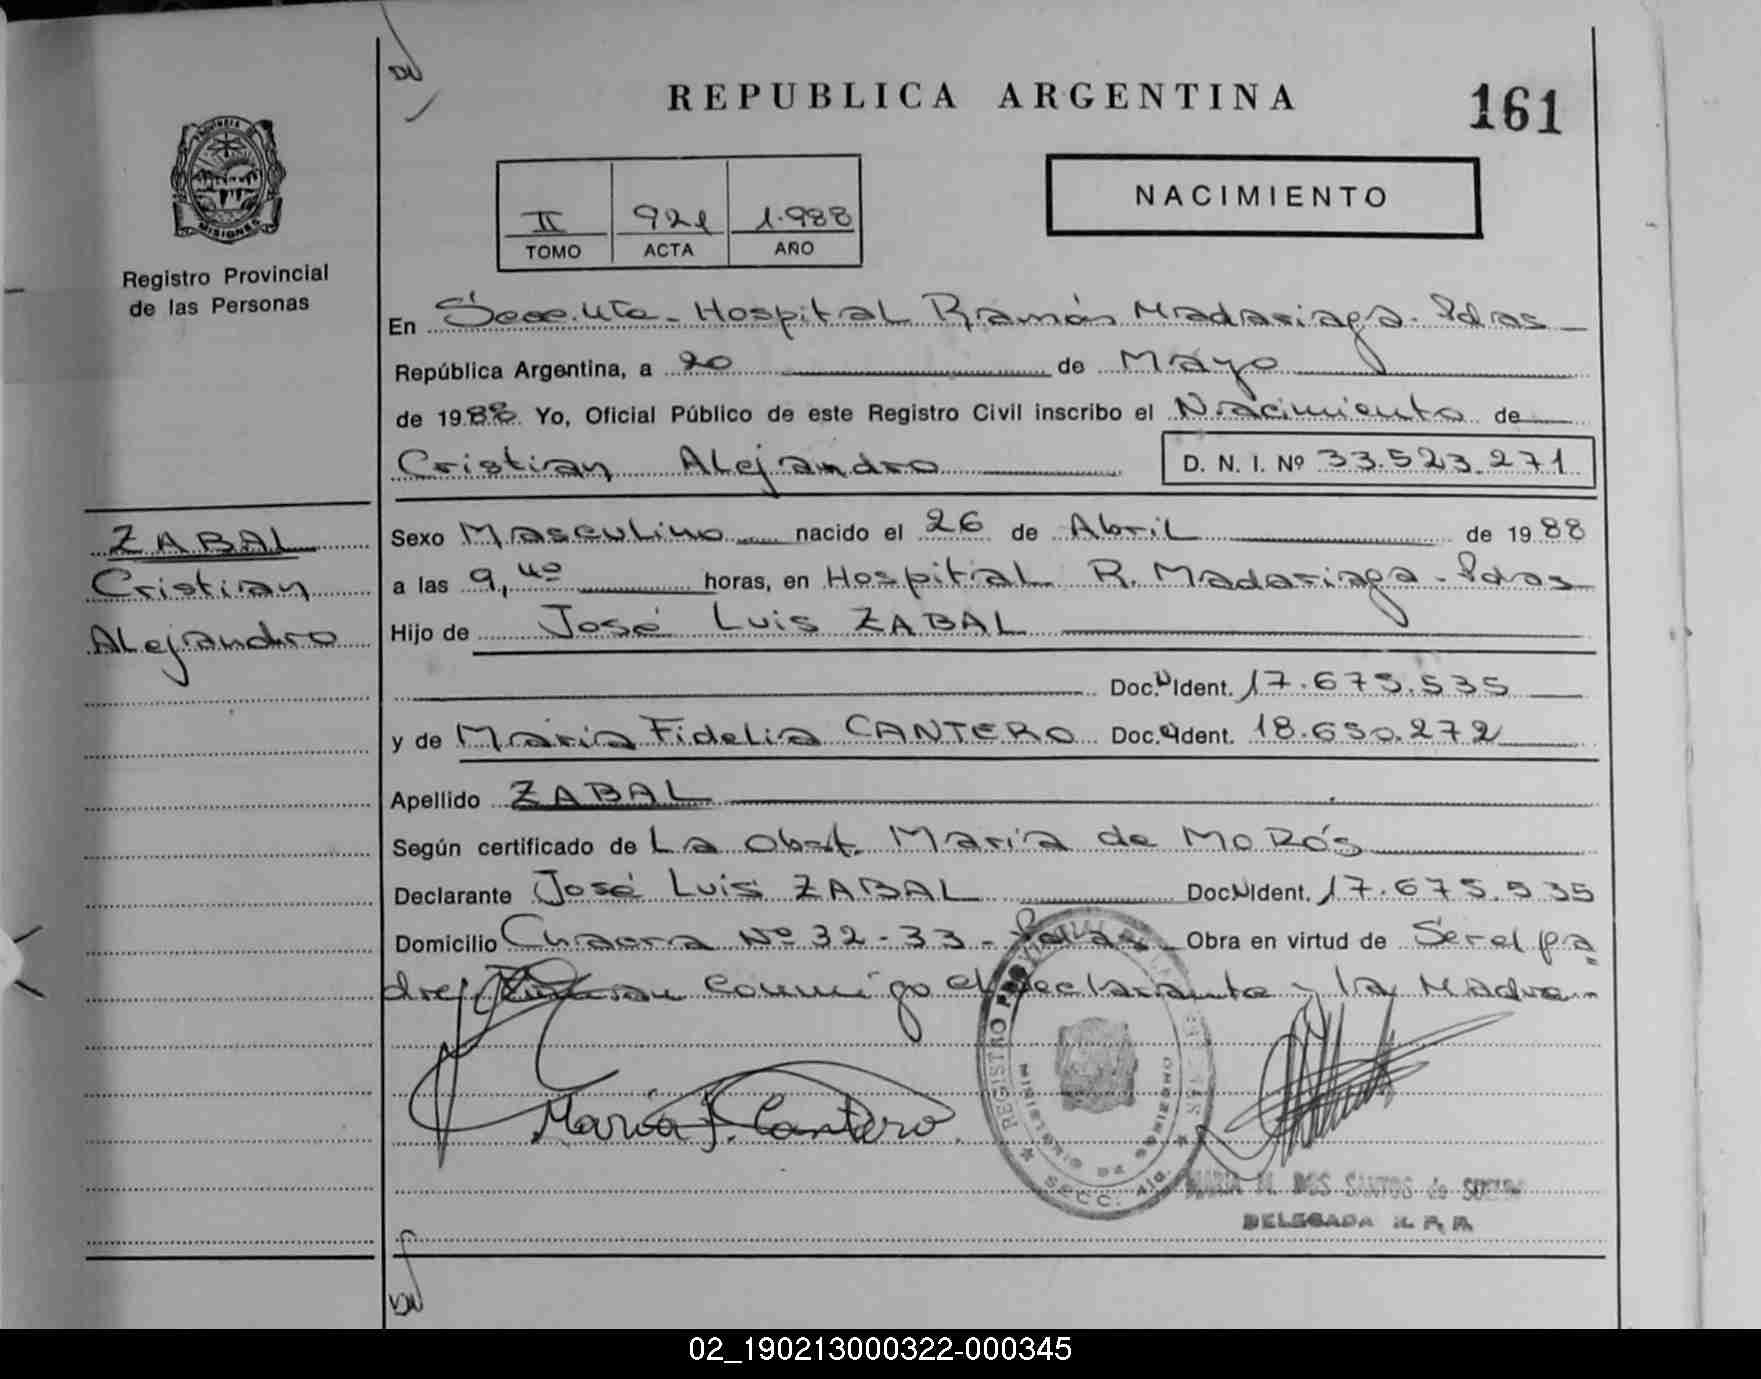 REPUBLICA ARGENTINA
161
PROVINCIA DE
MISIONES
Registro Provincial
de las Personas
II 921 1.988
TOMO ACTA AÑO
NACIMIENTO
En Secc. 4ta - Hospital Ramón Madariaga - Pdas
República Argentina, a 20 de Mayo
de 1988 Yo, Oficial Público de este Registro Civil inscribo el Nacimiento de
Cristian Alejandro D. N. I. Nº 33.523.271
ZABAL
Cristian
Alejandro
Sexo Masculino nacido el 26 de Abril de 1988
a las 9,40 horas, en Hospital R. Madariaga - Pdas
Hijo de José Luis ZABAL
Doc. N Ident. 17.675.535
y de María Fidelia CANTERO Doc. Ident. 18.650.272
Apellido ZABAL
Según certificado de La Obst. María de MoRós
Declarante José Luis ZABAL Doc N Ident. 17.675.535
Domicilio Chacra Nº 32-33 - Pdas - Obra en virtud de Ser el pa
dre, conmigo el declarante y la Madre
María F. Cantero
REGISTRO PROVINCIAL DE LAS
MINISTERIO DE GOBIERNO
SECC. 4ta
MARIA M. DOS SANTOS de
DELEGADA R. P. P.
02_190213000322-000345